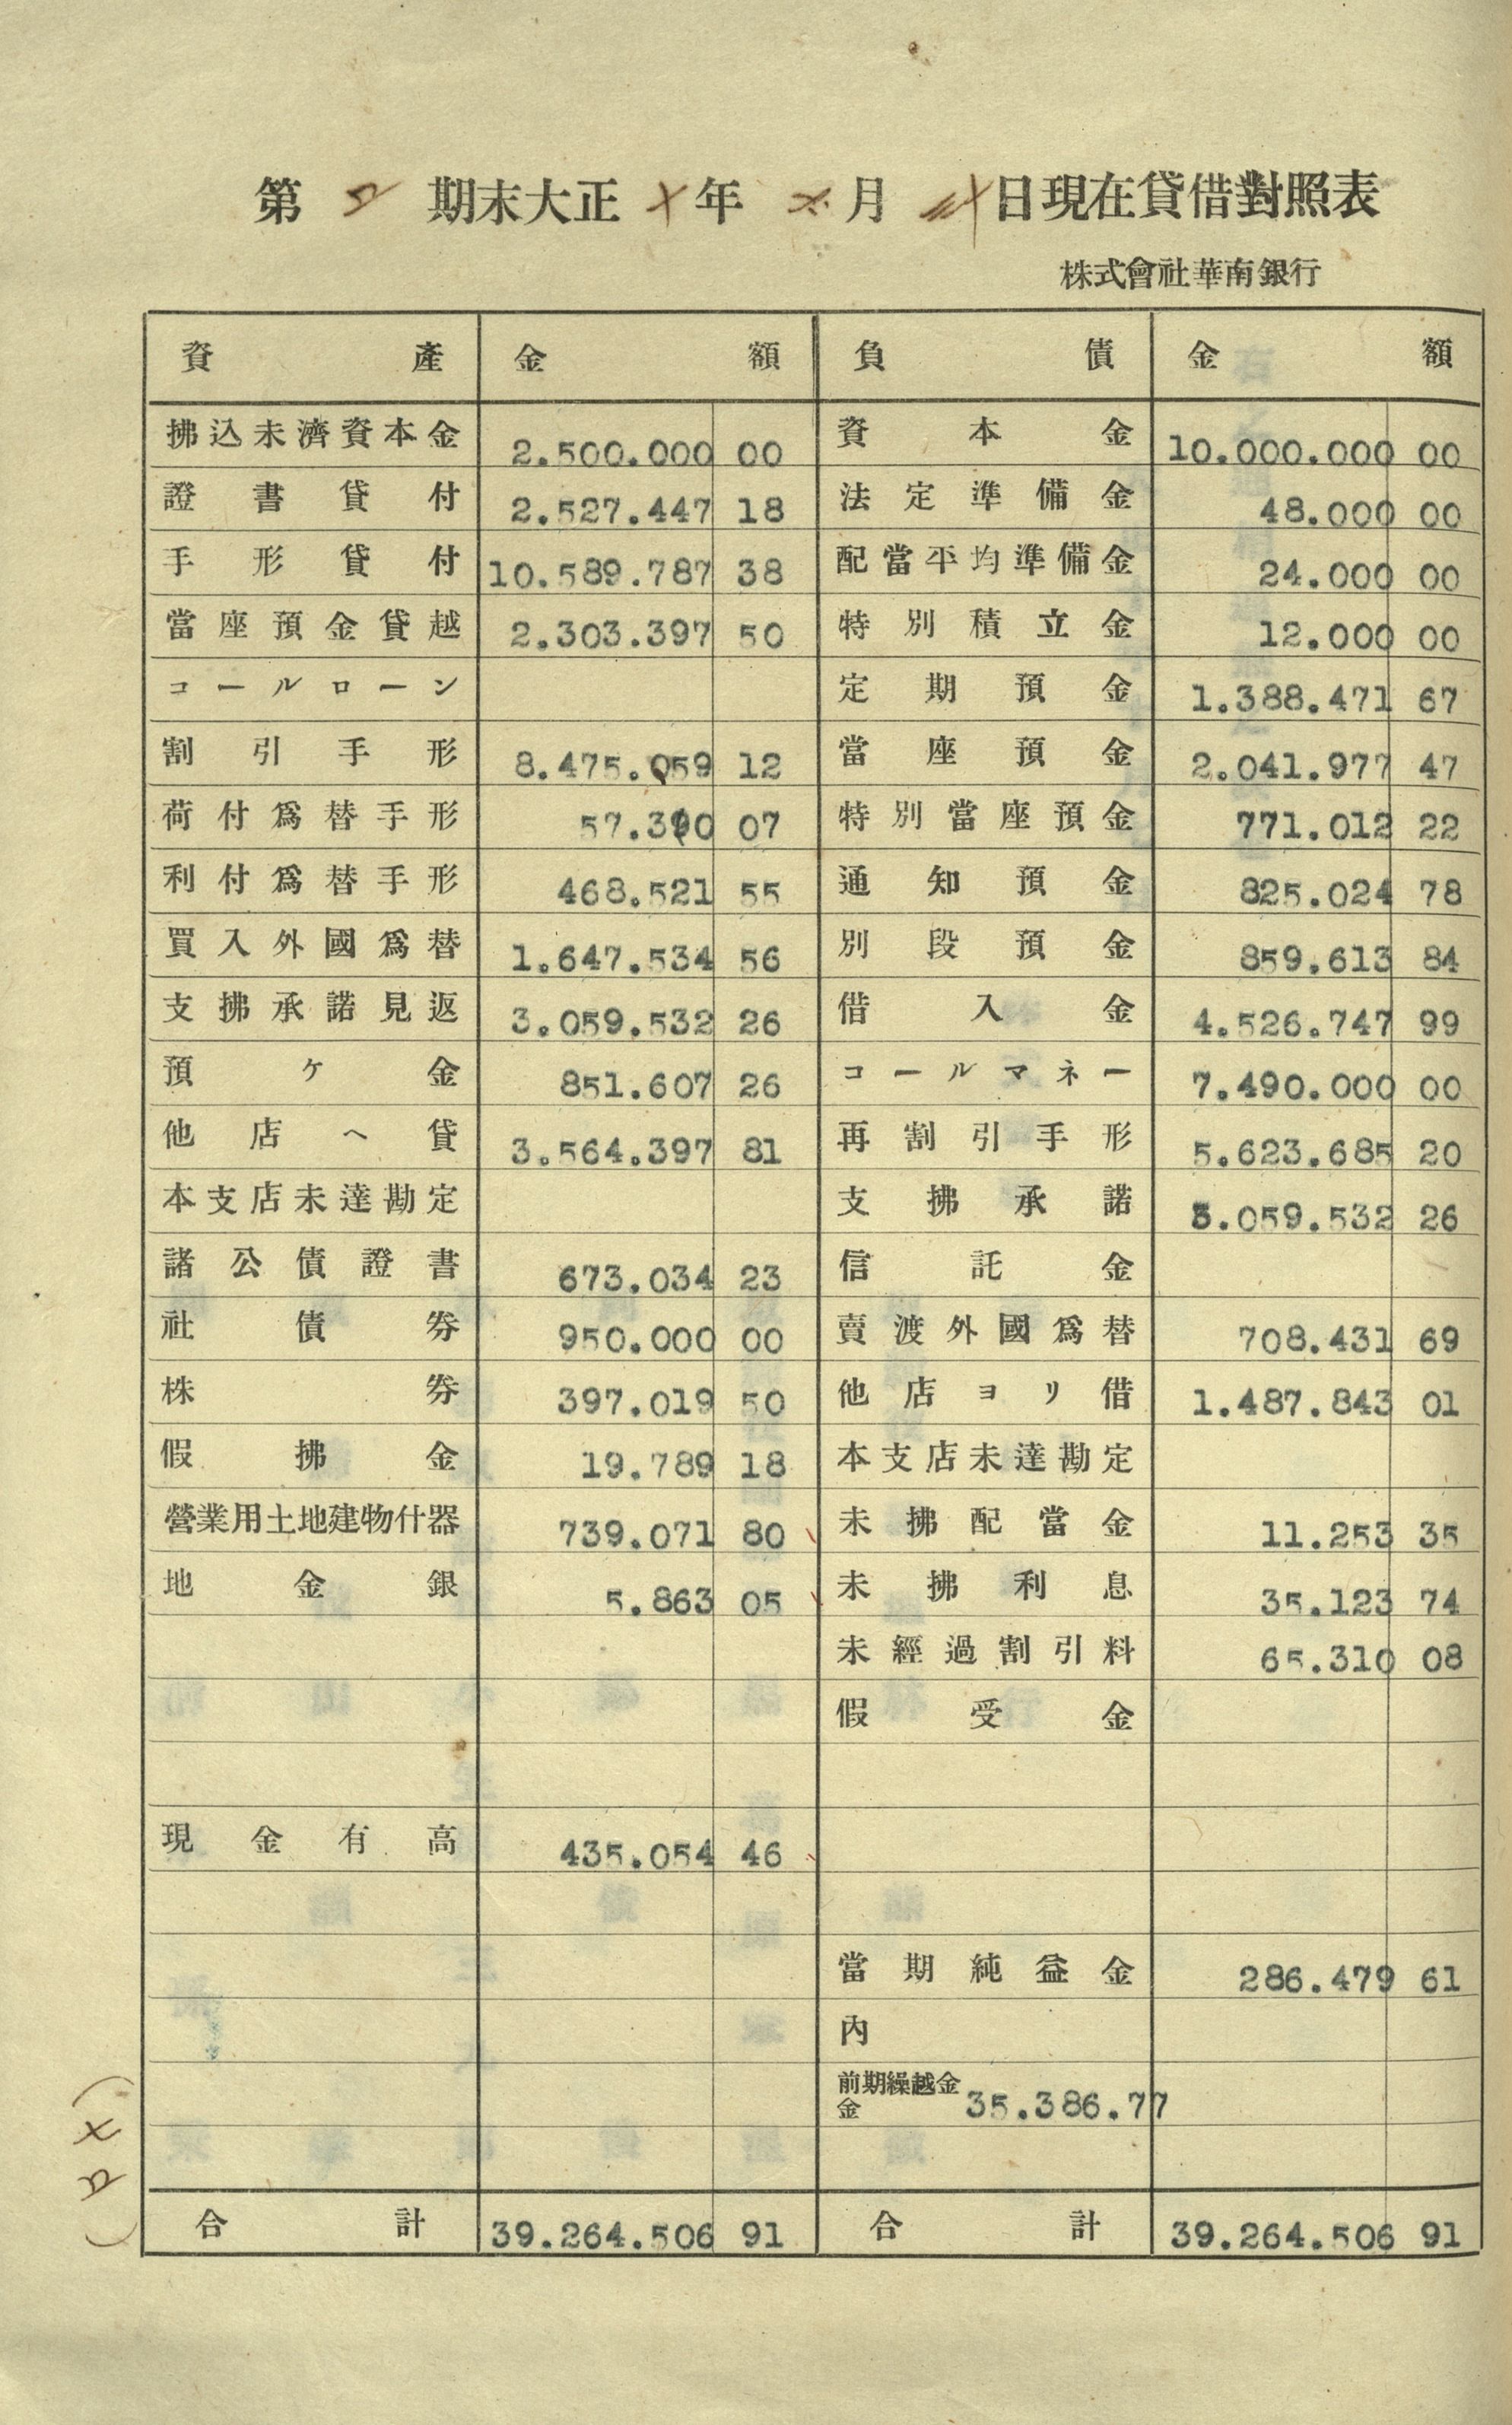 第 期末大正 十年 六月 卅日現在貸借對照表
株式會社華南銀行
資產 金額 負債 金額
拂込未濟資本金 2.500.000 00 資本金 10.000.000 00
證書貸付 2.527.447 18 法定準備金 48.000 00
手形貸付 10.589.787 38 配當平均準備金 24.000 00
當座預金貸越 2.303.397 50 特別積立金 12.000 00
コールローン 定期預金 1.388.471 67
割引手形 8.475.059 12 當座預金 2.041.977 47
荷付爲替手形 57.390 07 特別當座預金 771.012 22
利付爲替手形 468.521 55 通知預金 825.024 78
買入外國爲替 1.647.534 56 別段預金 859.613 84
支拂承諾見返 3.059.532 26 借入金 4.526.747 99
預ケ金 851.607 26 コールマネー 7.490.000 00
他店ヘ貸 3.564.397 81 再割引手形 5.623.685 20
本支店未達勘定 支拂承諾 3.059.532 26
諸公債證書 673.034 23 信託金
社債券 950.000 00 賣渡外國爲替 708.431 69
株券 397.019 50 他店ヨリ借 1.487.843 01
假拂金 19.789 18 本支店未達勘定
營業用土地建物什器 739.071 80 未拂配當金 11.253 35
地金銀 5.863 05 未拂利息 35.123 74
未經過割引料 65.310 08
假受金
現金有高 435.054 46
當期純益金 286.479 61
內
前期繰越金 35.386.77
金
合計 39.264.506 91 合計 39.264.506 91